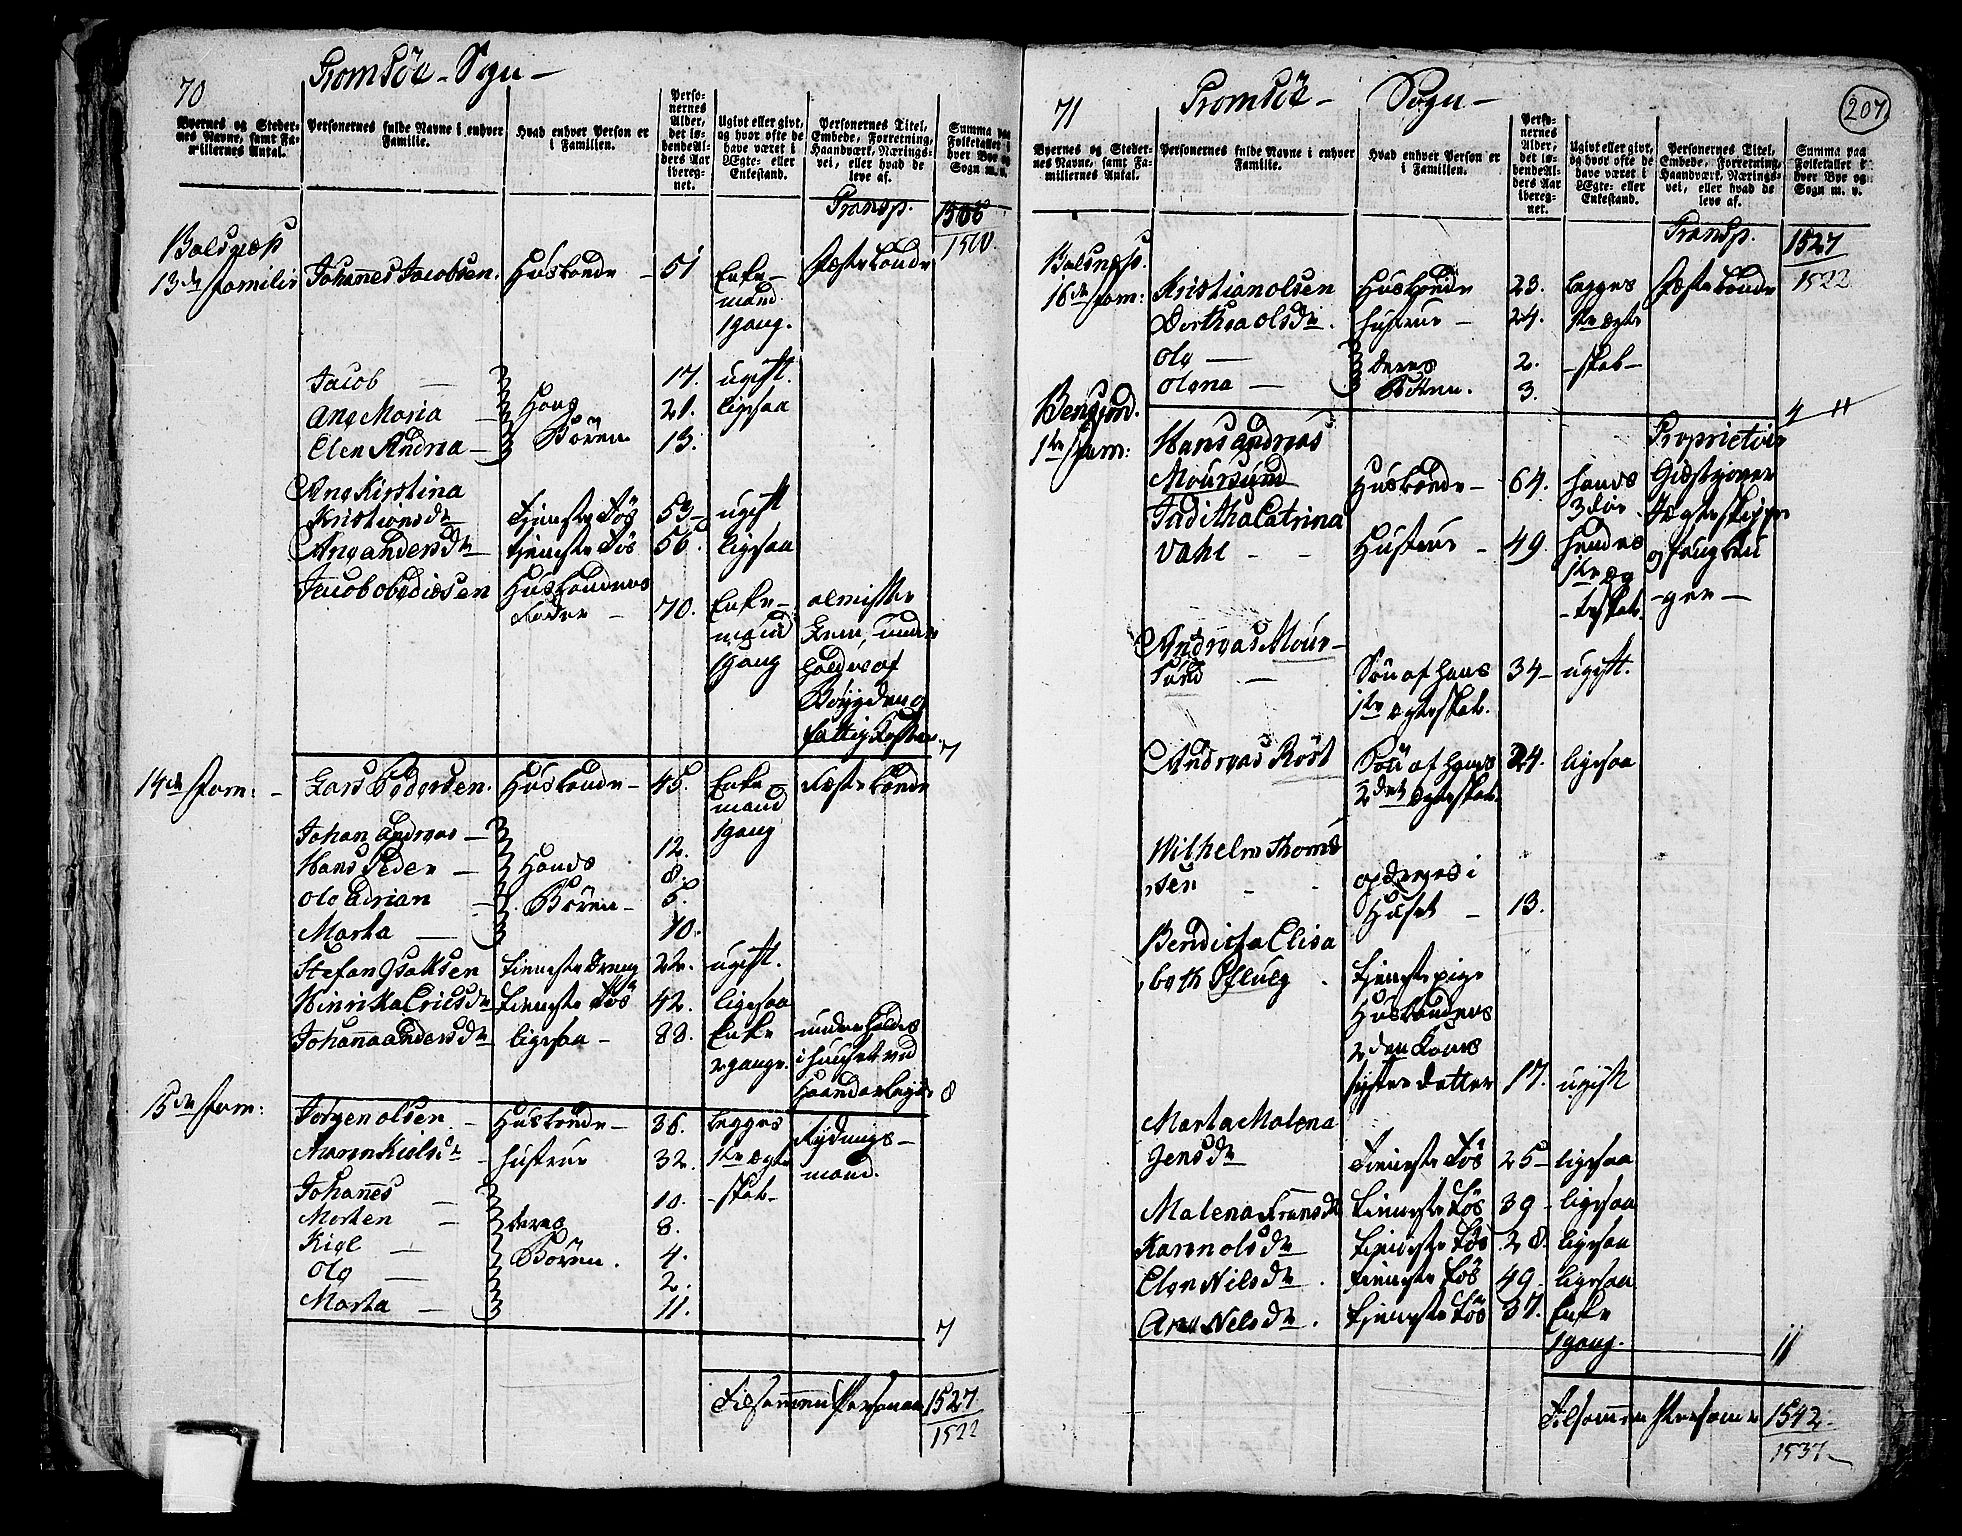 70
Tromsöe - Sogn -
Byernes og Steder-
nes Navne, samt Fa-
millernes Antal.
Personernes fulde Navne i enhver
Familie.
Hvad enhver Person er
i Familien.
Perso-
nernes
Alder,
det lø-
bende Al-
ders Aar
iberegn-
net.
Ugivt eller givt,
og hvor ofte de
have været i
Ægte- eller
Enkestand.
Personernes Titel,
Embede, Forretning,
Haandværk, Nærings-
vei, eller hvad de
leve af.
Summa paa
Folketallet i
hver Bye og
Sogn m. v.
Transp.
1505
1500.
Balsnæss
13de Familie Johannes Jacobsen. Husbonde - 51 Enke- Fæstebonde
mand
1 gang.
Jacob — 17. ugift.
Ane Maria - Hans 21. ligesaa
Elen Andrea - Børen 13.
Ane Kirstina
Kristiansdr tjeneste Tøs 53 - ugift
Ane andersdr tjeneste Tøs 56. ligesaa
Jacob obediesen Husbondens
Fader - 70. Enke- almisse
mand Lem, under
1 gang holdes af
Bøygdens
fattig Kasse. 7
14de Fam: - Lars Pedersen. Husbonde - 45. Enke- Fæstebonde
mand
1 gang
Johan Andreas - 12.
Hans Peder - Hands 8.
Ole Adrian - Børen - 5.
Marta — 10.
Stefan Isaksen tieneste dreng 22. ugift.
Hinrikka Ericsdr tieneste Tøs 42. ligesaa
Johanna andersdr ligesaa - 88. Enke underholdes
2 gange. i huuset ved
Haandarbeyde 8
15de Fam:
Jørgen olsen - Husbonde - 36. begges Rydnings-
Maren Kielsdr - hustrue 32. 1te ægte mand.
Johannes - 10. -skab-
Morten - deres 8.
Kiel — Børen. 4.
Ole — 2.
Marta — 11.
7
Tilsammen Personer 1527
1522
71
Tromsöe - Sogn -
207
Byernes og Steder-
nes Navne, samt Fa-
millernes Antal.
Personernes fulde Navne i enhver
Familie.
Hvad enhver Person er
i Familien.
Perso-
nernes
Alder,
det lø-
bende Al-
ders Aar
iberegn-
net.
Ugivt eller givt,
og hvor ofte de
have været i
Ægte- eller
Enkestand.
Personernes Titel,
Embede, Forretning,
Haandværk, Nærings-
vei, eller hvad de
leve af.
Summa paa
Folketallet i
hver Bye og
Sogn m. v.
Transp. 1527
1522
Balsnæss.
16de Fam: Kristian olsen Husbonde 23. begges Fæstebonde
Dorthea olsdr. hustrue - 24. 1te ægte
ole — deres 2. -skab-
olena — Børen. 3.
4 "
Bensjord.
1te Fam: Hans andreas Proprietair
Moursund Husbonde - 64. hands Giæstgiver
3die
Juditha Catrina
Vahl - - Hustrue - 49. hendes
1te æg
-teskab.
Andreas Mour-
sund — Søn af hans 34 - ugift.
1te ægteskab.
Andreas Röst Søn af hans 24. ligesaa
2det ægteskab.
Wilhelm Thoms
sen - - opdrages i
Huset - 13.
Bendicta Elisa
beth Pflueg . tjenestepige
Husbondens
2den Kones
søster datter 17. ugift
Marta Malena
Jensdr tieneste Tøs 25 - ligesaa
Malena Fransdr tieneste Tøs 39 - ligesaa
Karen olsdr tieneste Tøs 28. ligesaa
Elen Nilsdr . tieneste Tøs 49 - ligesaa
Ane Nelsdr. tjeneste Tøs 37. Enke
1 gang. 11
Tilsammen Personer 1542
1537